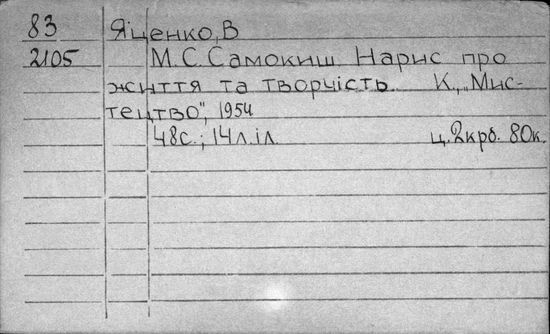 83 Яценко, В
2105 М.С. Самокиш. Нарис про
життя та творчість. К., „Мис-
тецтво", 1954
48с.; 14л.іл. ц. 2крб. 80к.